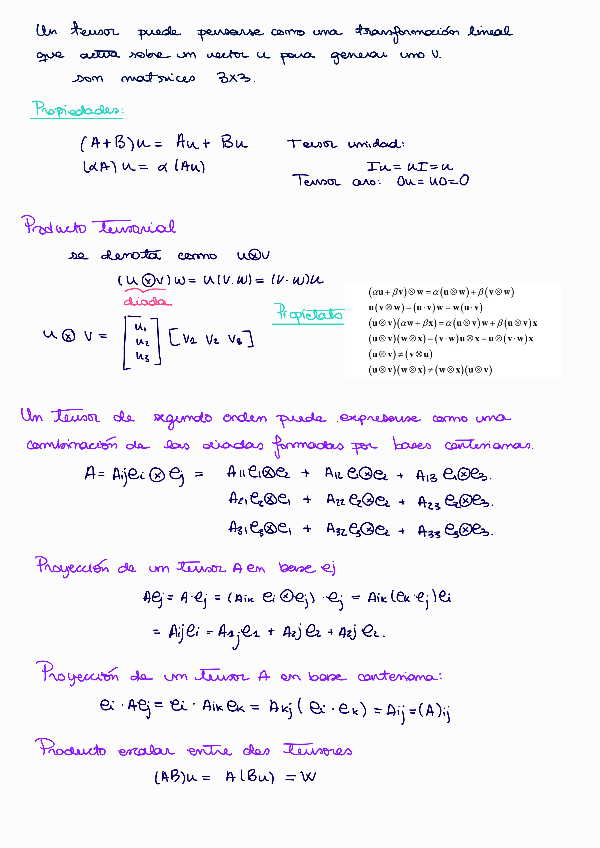 Un tensor puede pensarse como una transformación lineal
que actúa sobre un vector u para generar uno v.
son matrices 3x3.
Propiedades:
(A+B)u = Au + Bu
Tensor unidad:
(αA)u = α(Au)
Iu = uI = u
Tensor cero: 0u = u0 = 0
Producto tensorial
se denota como u⊗v
(u⊗v)w = u(v.w) = (v.w)u
diada
Propietats
(αu + βv)⊗w = α(u⊗w) + β(v⊗w)
u(v⊗w) = (u·v)w = w(u·v)
(u⊗v)(αw + βx) = α(u⊗v)w + β(u⊗v)x
(u⊗v)(w⊗x) = (v·w)u⊗x = u⊗(v·w)x
(u⊗v) ≠ (v⊗u)
(u⊗v)(w⊗x) ≠ (w⊗x)(u⊗v)
u ⊗ v = [u1 u2 u3] [v1 v2 v3]
Un tensor de segundo orden puede expresarse como una
combinación de las diadas formadas por bases cartesianas.
A = Aij ei ⊗ ej = A11e1⊗e2 + A12 e1⊗e2 + A13 e1⊗e3.
A21e2⊗e1 + A22 e2⊗e2 + A23 e2⊗e3.
A31e3⊗e1 + A32 e3⊗e2 + A33 e3⊗e3.
Proyección de un tensor A en base ej
Aej = A·ej = (Aik ei⊗ej)·ej = Aik(ek·ej)ei
= Aijei = A1je1 + A2je2 + A2je2.
Proyección de un tensor A en base cartesiana:
ei · Aej = ei · Aik ek = Akj(ei · ek) = Aij = (A)ij
Producto escalar entre dos tensores
(AB)u = A(Bu) = W